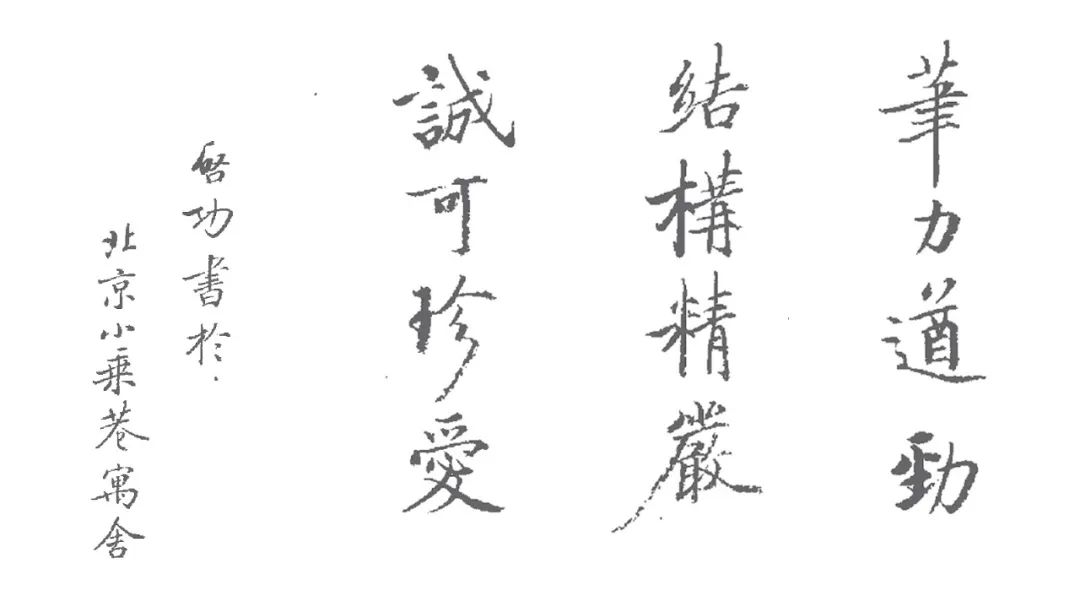 筆力遒勁
結構精嚴
誠可珍愛
啓功書於
北京小乘巷寓舍